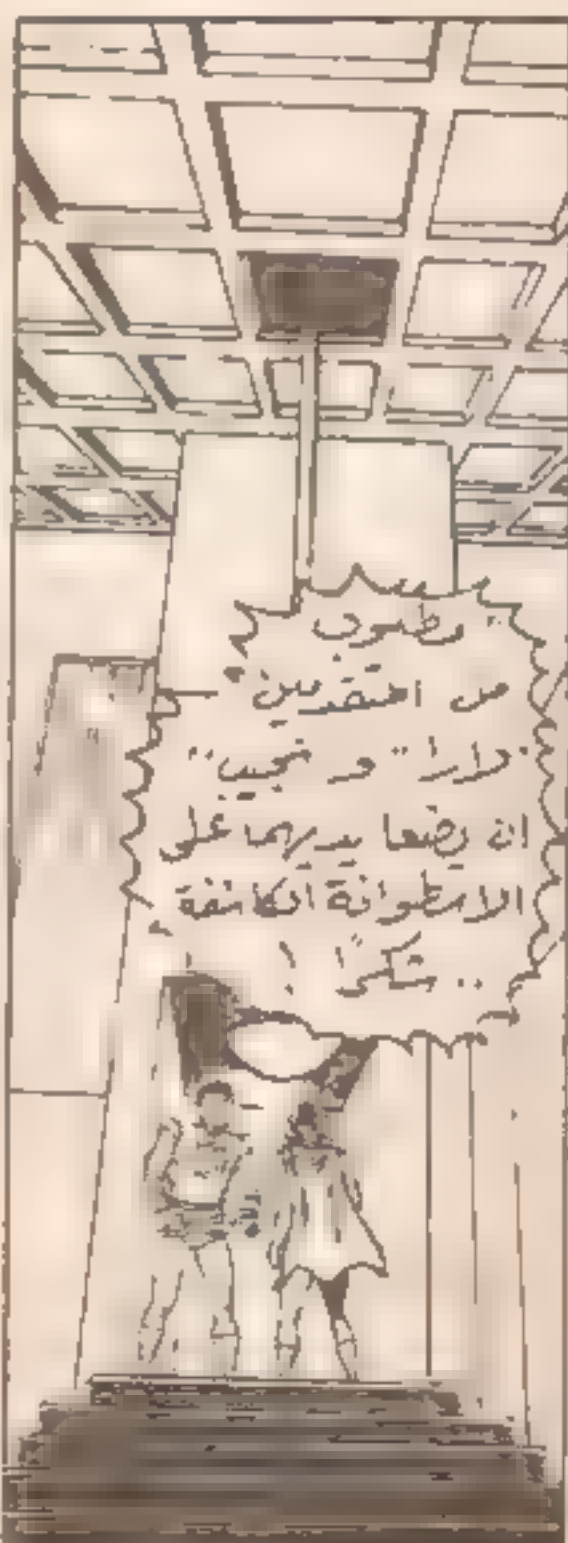 مطلوب
من المتقدمين
"دارا" و نجيب"
ان يضعا يديهما على
الاسطوانة الكاشفة
.. شكرًا !